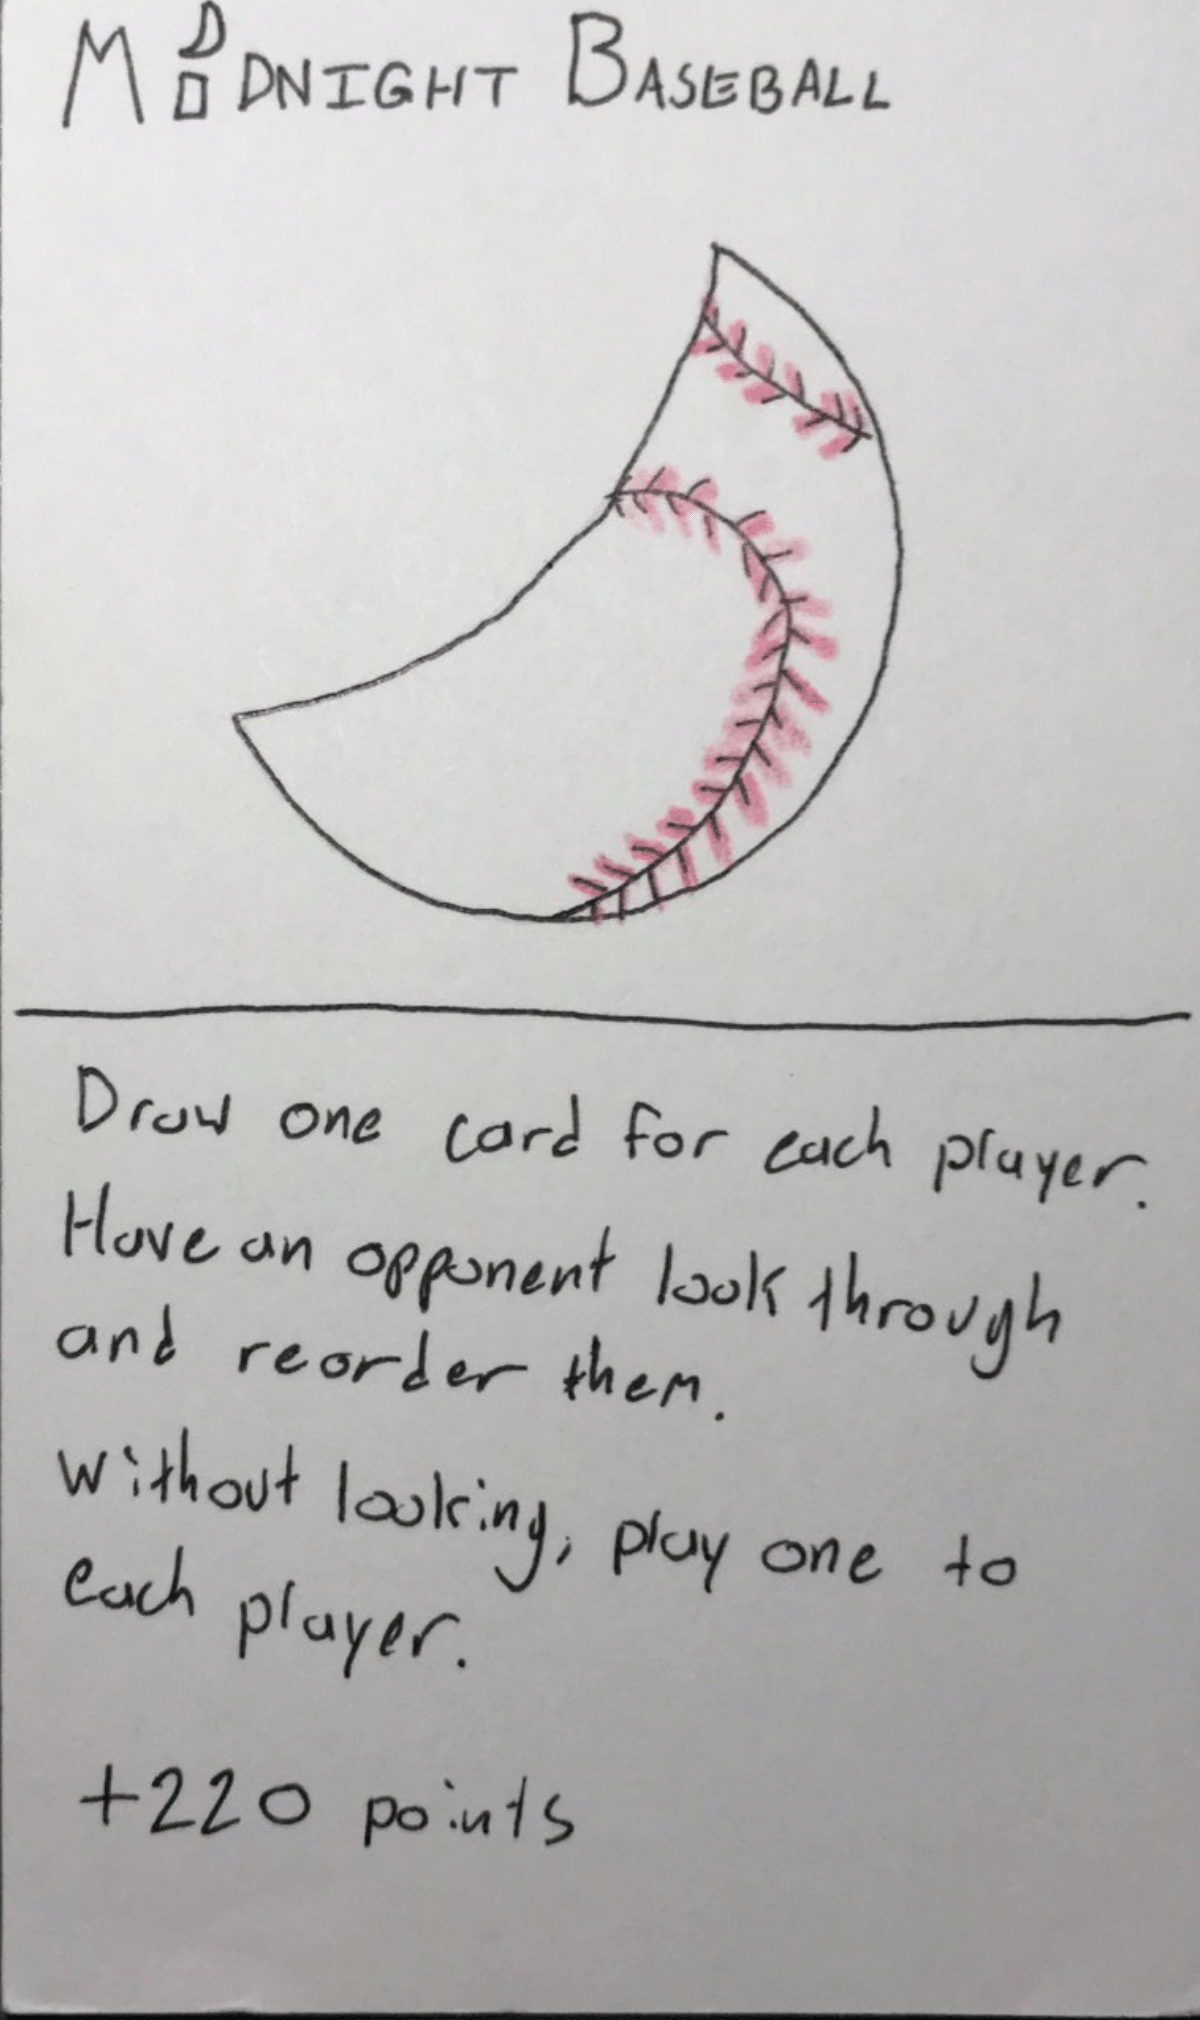 MIDNIGHT BASEBALL
Draw one card for each player.
Have an opponent look through
and reorder them.
Without looking, play one to
each player.
+220 points